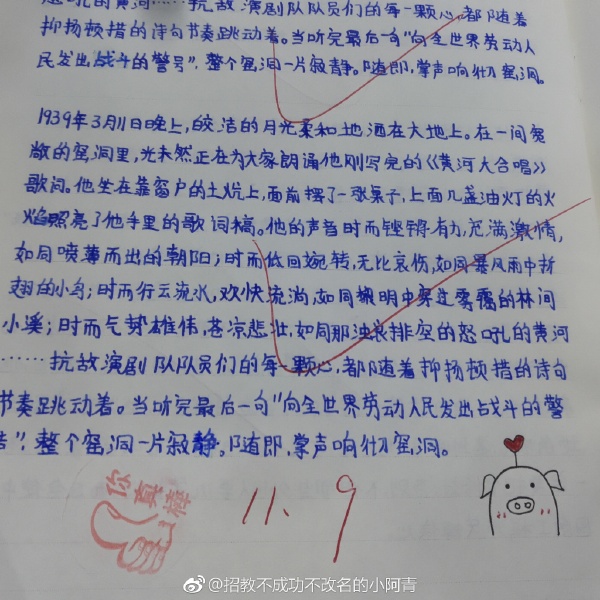 怒吼的黄河……抗敌演剧队队员们的每一颗心,都随着
抑扬顿措的诗句节奏跳动着。当听完最后一句"向全世界劳动人
民发出战斗的警号",整个窑洞一片寂静。随即,掌声响彻窑洞。
1939年3月11日晚上,皎洁的月光柔和地洒在大地上。在一间宽
敞的窑洞里,光未然正在为大家朗诵他刚写完的《黄河大合唱》
歌词。他坐在靠窗户的土炕上,面前摆了一张桌子,上面几盏油灯的火
焰照亮了他手里的歌词稿。他的声音时而铿锵有力,充满激情,
如同喷薄而出的朝阳;时而低回婉转,无比哀伤,如同暴风雨中折
翅的小鸟;时而行云流水,欢快流淌,如同黎明中穿过雾霭的林间
小溪;时而气势雄伟,苍凉悲壮,如同那浊浪排空的怒吼的黄河
……抗敌演剧队队员们的每一颗心,都随着抑扬顿措的诗句
节奏跳动着。当听完最后一句"向全世界劳动人民发出战斗的警
号",整个窑洞一片寂静。随即,掌声响彻窑洞。
你真棒
11.9
@招教不成功不改名的小阿青